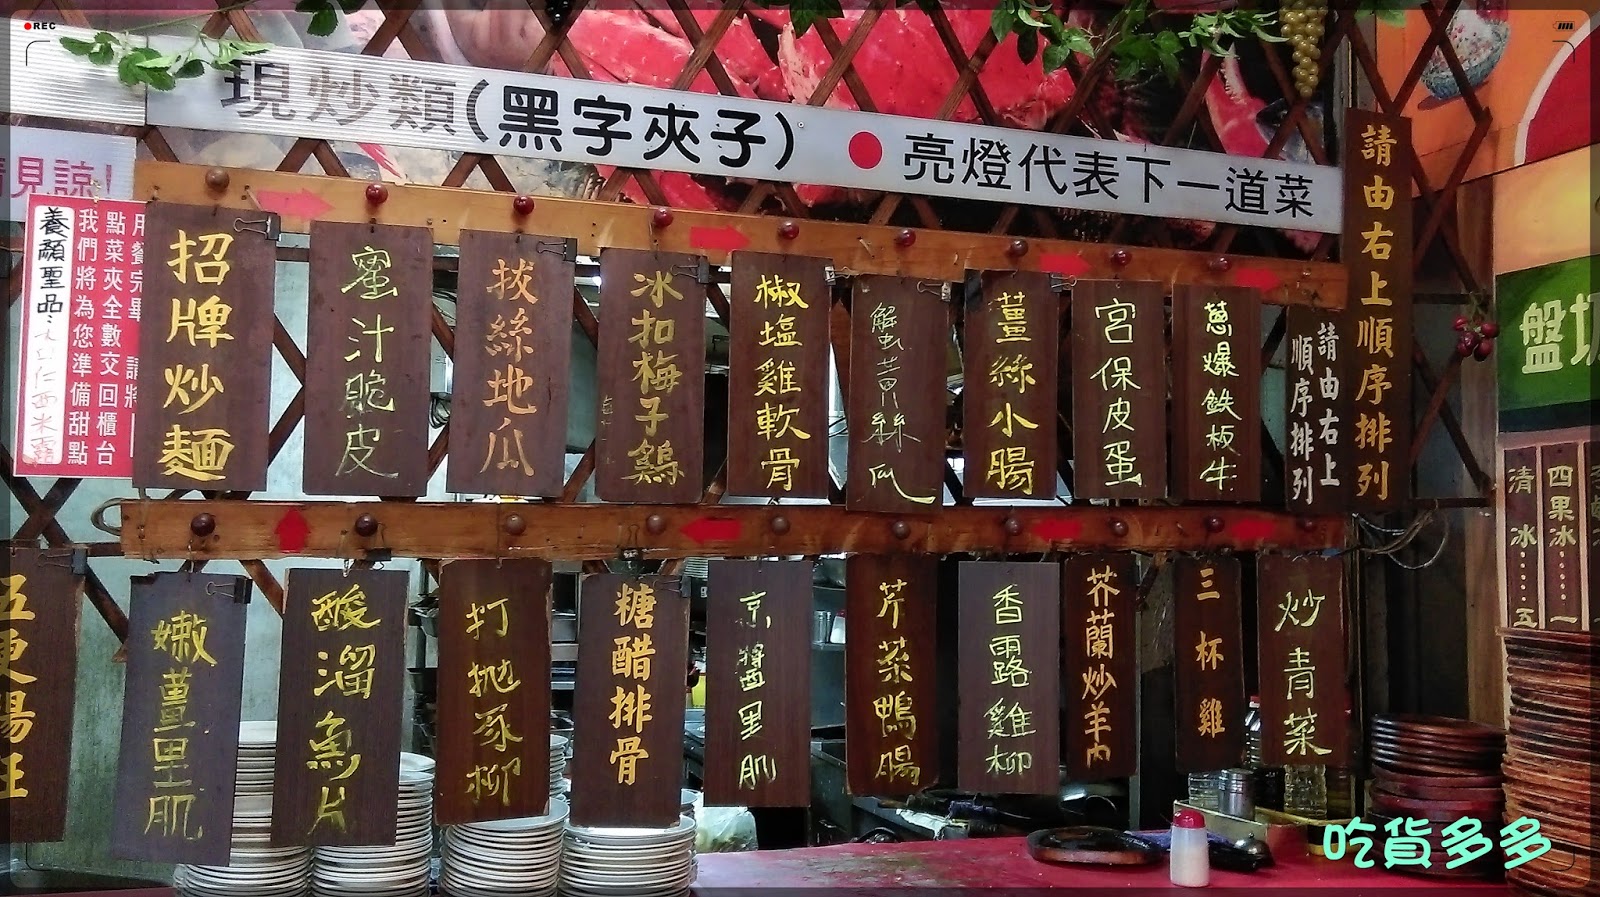 REC
現炒類(黑字夾子)●亮燈代表下一道菜
請見諒!
用餐完畢 請將
點菜夾全數交回櫃台
我們將為您準備甜點
請由右上順序排列
請由右上
順序排列
蔥爆鉄板牛
宮保皮蛋
薑絲小腸
蟹黃絲瓜
椒塩雞軟骨
冰扣梅子鷄
拔絲地瓜
蜜汁脆皮
招牌炒麵
炒青菜
三杯雞
芥蘭炒羊肉
香露雞柳
芹菜鴨腸
京醬里肌
糖醋排骨
打拋豕柳
酸溜魚片
嫩薑里肌
五更腸旺
養顏聖品:
仁西米露
盤
四果冰……一
清冰……五
吃貨多多